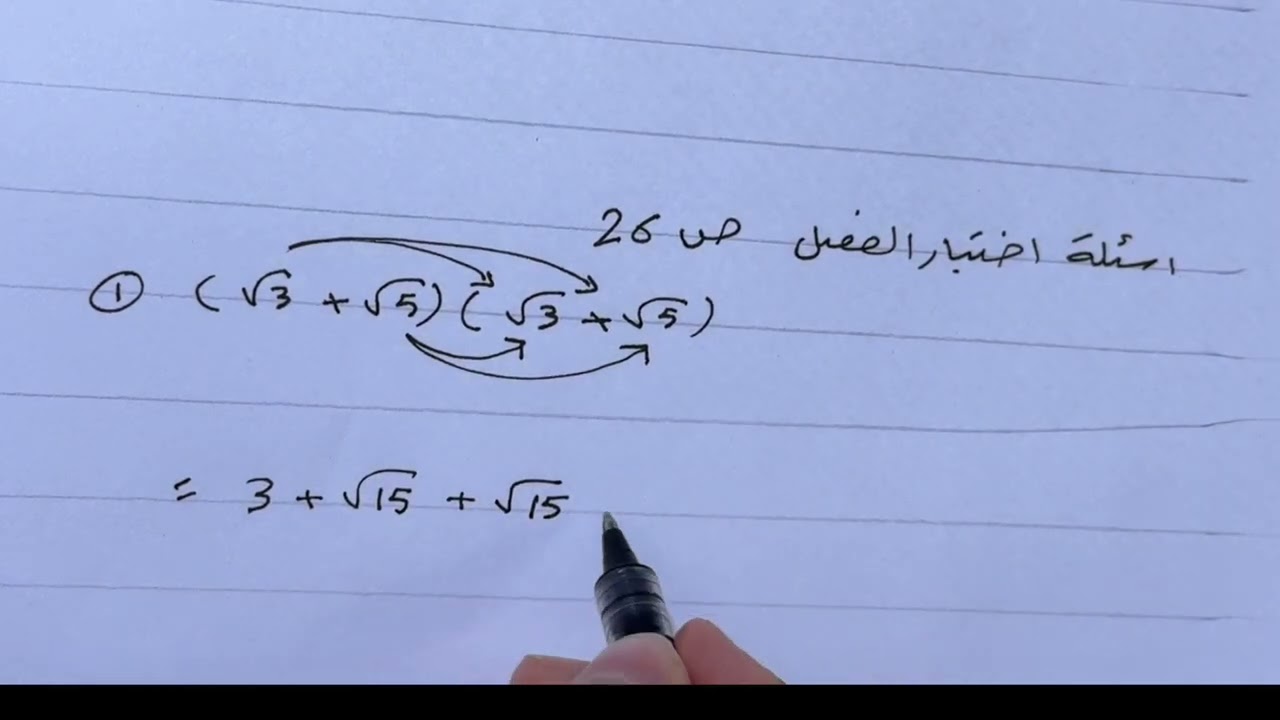 اسئلة اختبار الفصل ص 26
① (√3 + √5)(√3 + √5)
= 3 + √15 + √15